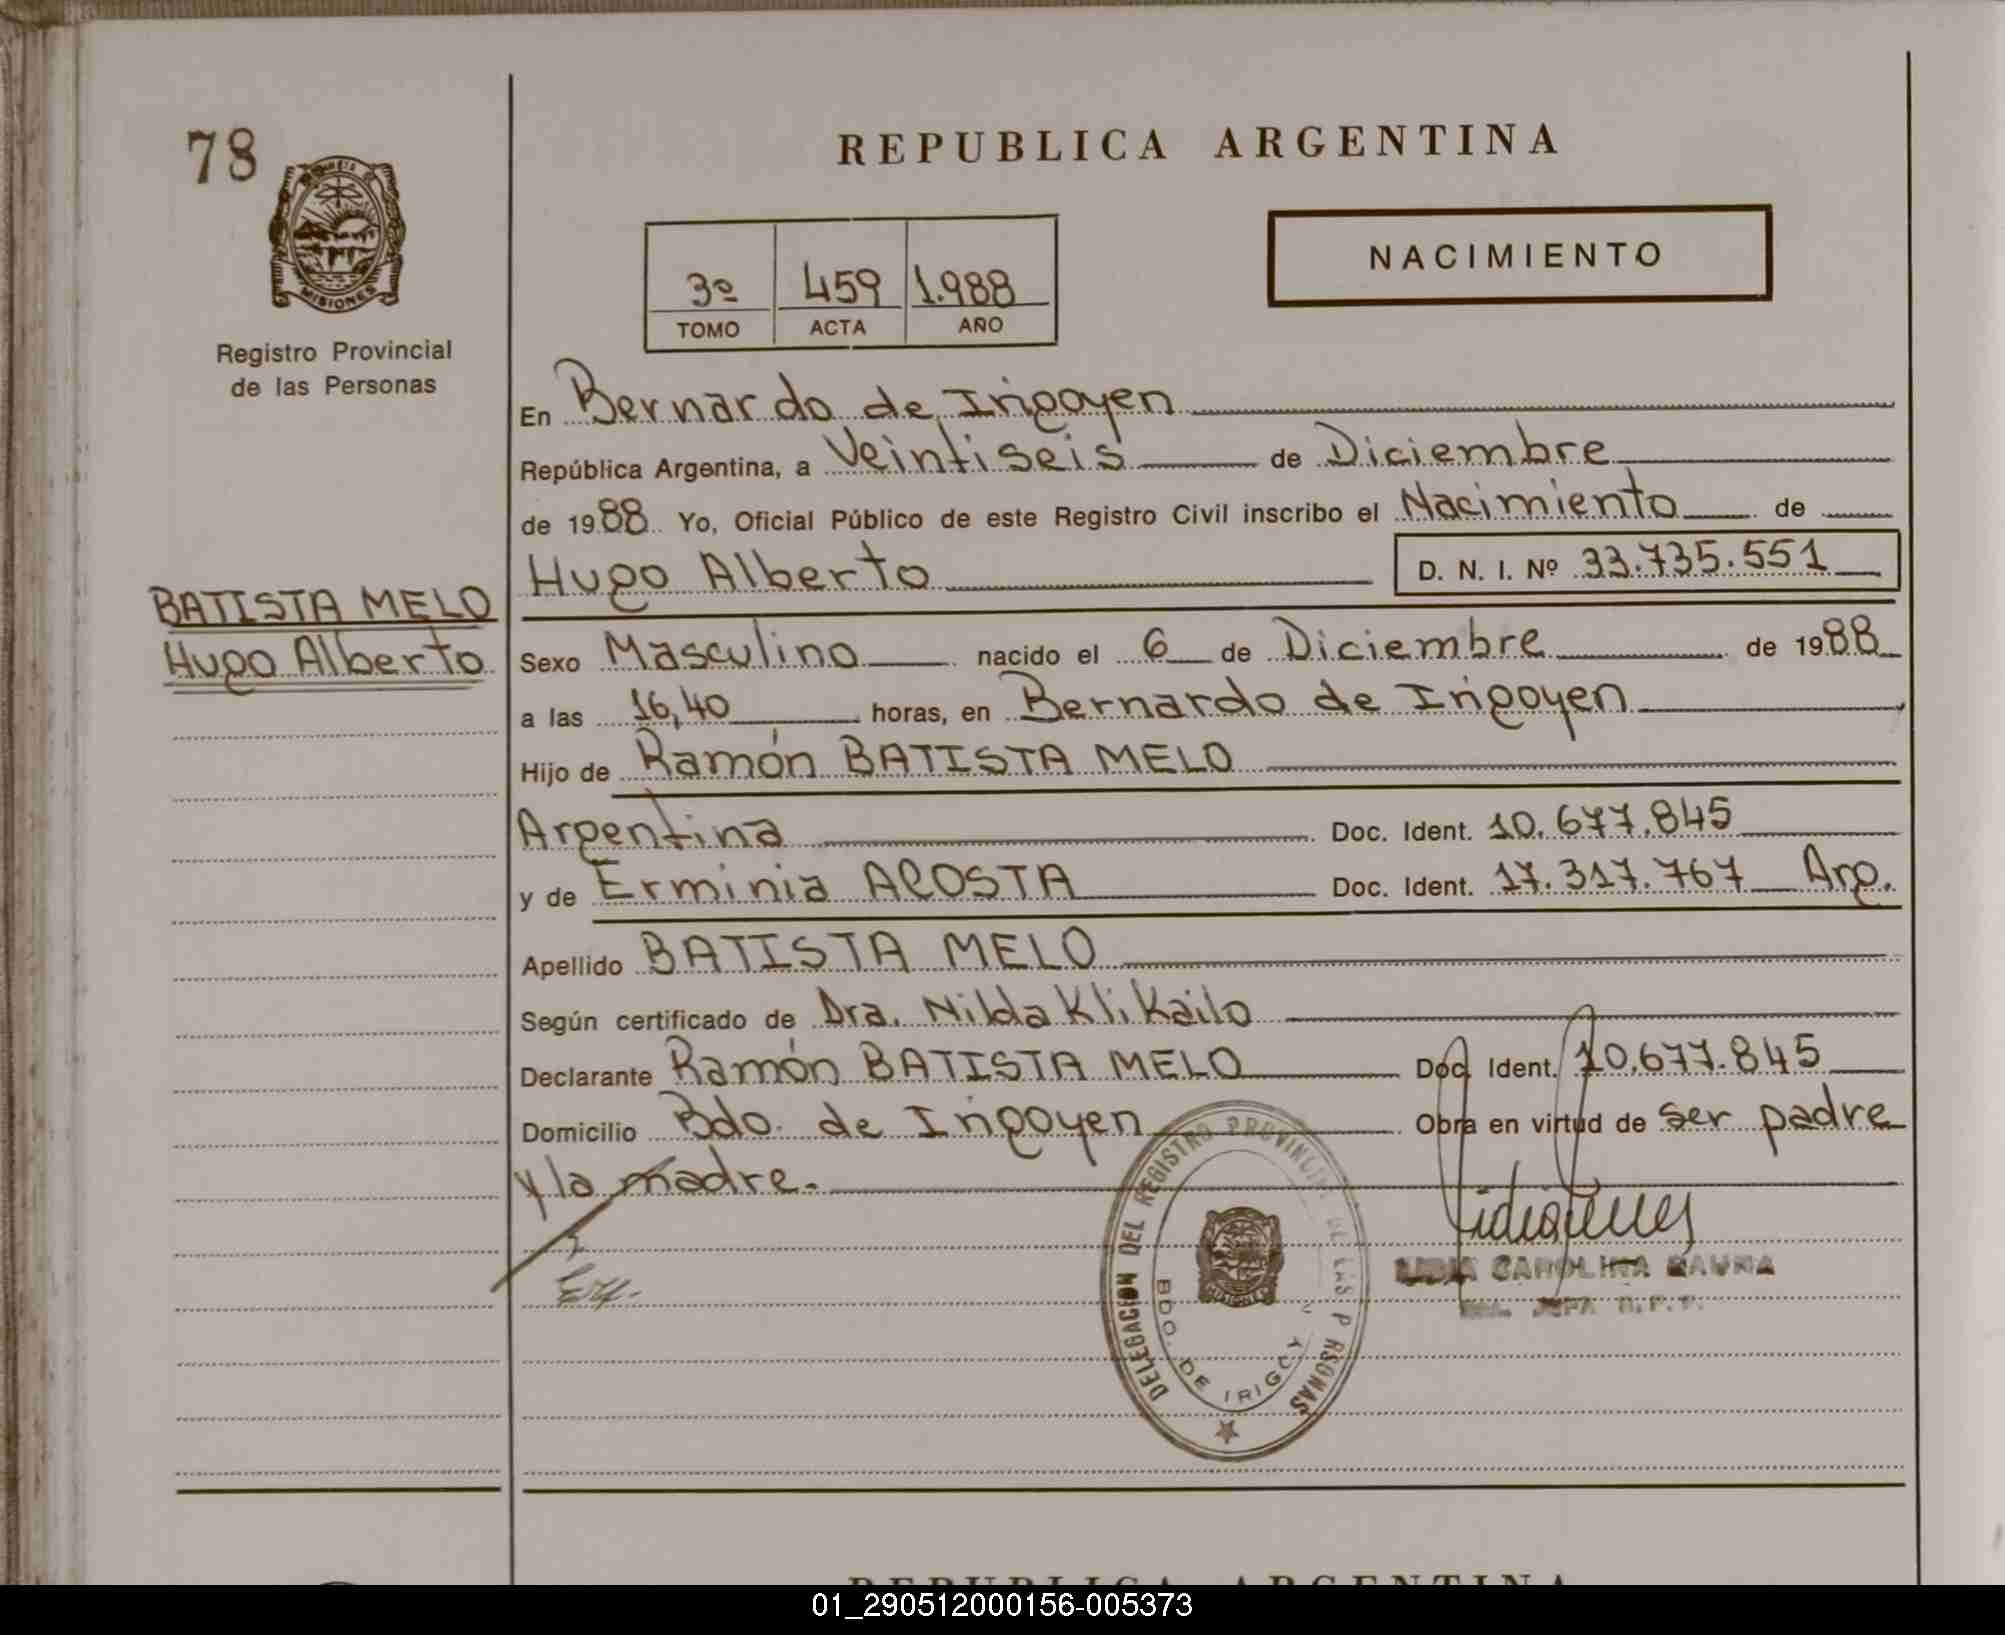 78
MISIONES
Registro Provincial
de las Personas
BATISTA MELO
Hugo Alberto
REPUBLICA ARGENTINA
NACIMIENTO
3º 459 1.988
TOMO ACTA AÑO
En Bernardo de Irigoyen
República Argentina, a Veintiseis de Diciembre
de 1988 Yo, Oficial Público de este Registro Civil inscribo el Nacimiento de
Hugo Alberto D. N. I. Nº 33.735.551
Sexo Masculino nacido el 6 de Diciembre de 1988
a las 16,40 horas, en Bernardo de Irigoyen
Hijo de Ramón BATISTA MELO
Argentina Doc. Ident. 10.677.845
y de Erminia ACOSTA Doc. Ident. 17.317.767 Arg.
Apellido BATISTA MELO
Según certificado de Dra. Nilda Klikailo
Declarante Ramón BATISTA MELO Doc. Ident. 10.677.845
Domicilio Bdo. de Irigoyen Obra en virtud de ser padre
y la madre.
DELEGACION DEL REGISTRO PROVINCIAL DE LAS P RSONAS
BDO. DE IRIGOY
CAROLINA
REPUBLICA ARGENTINA
01_290512000156-005373